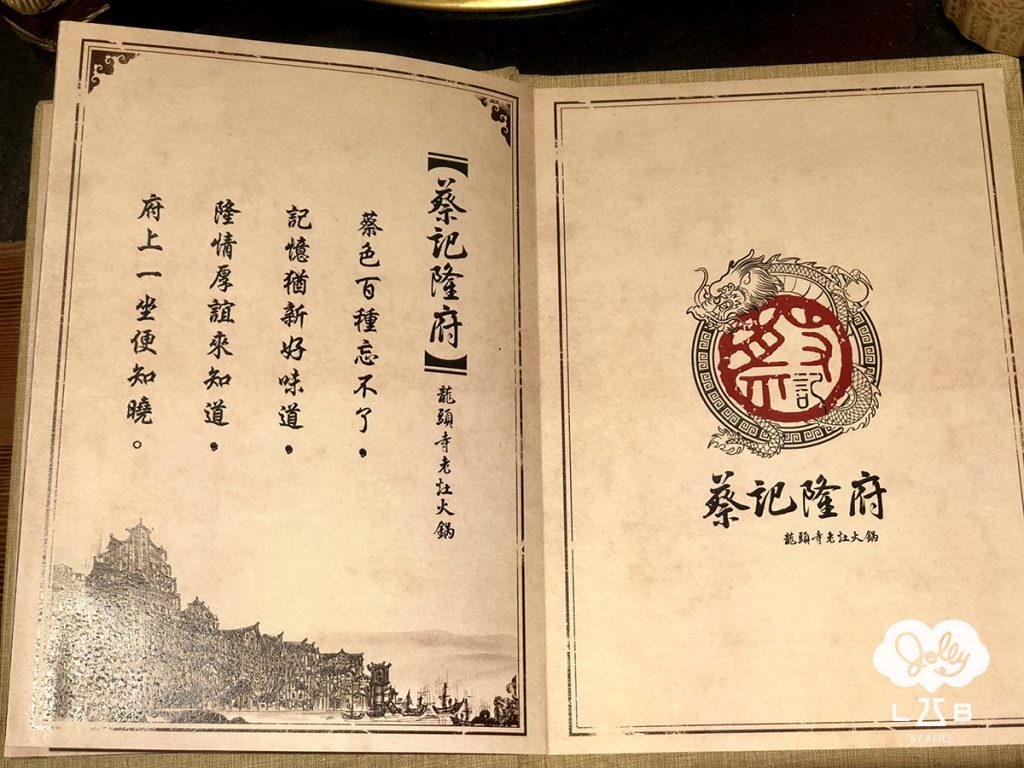 【蔡記隆府】龍頭寺老灶火鍋
蔡色百種忘不了，
記憶猶新好味道，
隆情厚誼來知道，
府上一坐便知曉。
蔡記
蔡記隆府
龍頭寺老灶火鍋
Jolly
LAB
BY ALICE